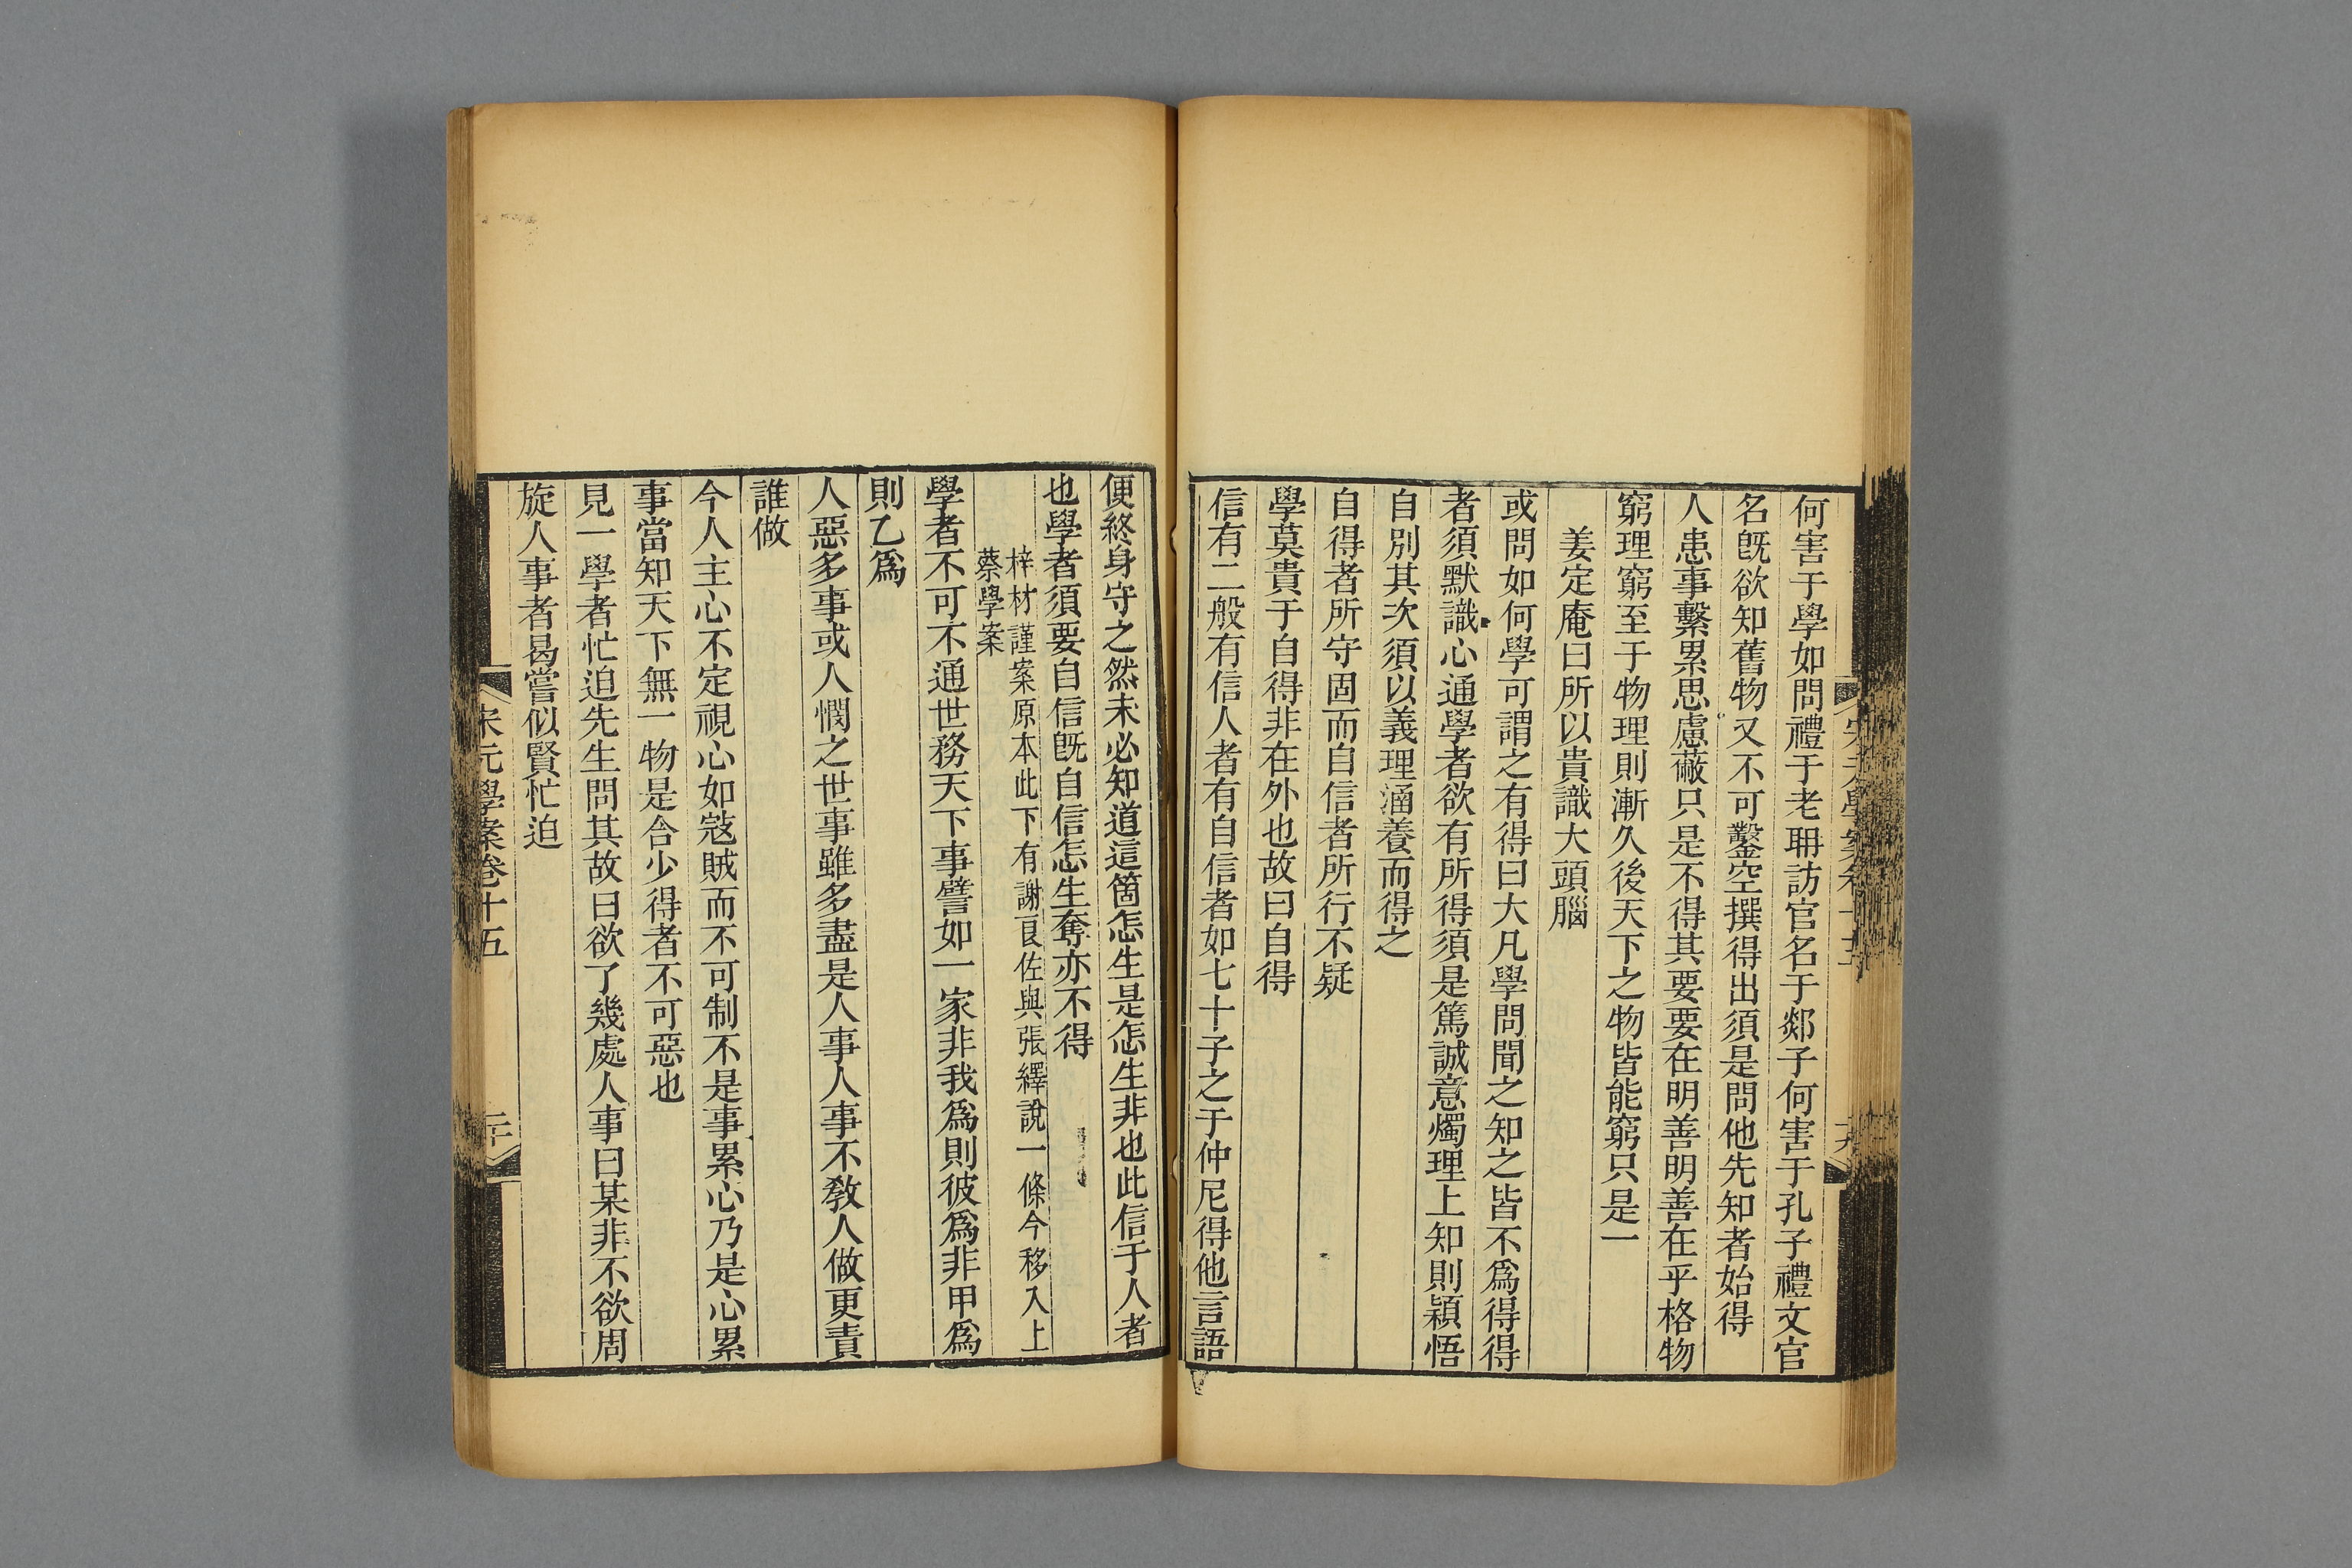 何害于學如問禮于老聃訪官名于郯子何害于孔子禮文官
名旣欲知舊物又不可鑿空撰得出須是問他先知者始得
人患事繫累思慮蔽只是不得其要要在明善明善在乎格物
窮理窮至于物理則漸久後天下之物皆能窮只是一
姜定庵曰所以貴識大頭腦
或問如何學可謂之有得曰大凡學問聞之知之皆不爲得得
者須默識心通學者欲有所得須是篤誠意燭理上知則穎悟
自別其次須以義理涵養而得之
自得者所守固而自信者所行不疑
學莫貴于自得非在外也故曰自得
信有二般有信人者有自信者如七十子之于仲尼得他言語
便終身守之然未必知道這箇怎生是怎生非也此信于人者
也學者須要自信旣自信怎生奪亦不得
梓材謹案原本此下有謝良佐與張繹說一條今移入上
蔡學案
學者不可不通世務天下事譬如一家非我爲則彼爲非甲爲
則乙爲
人惡多事或人憫之世事雖多盡是人事人事不敎人做更責
誰做
今人主心不定視心如寇賊而不可制不是事累心乃是心累
事當知天下無一物是合少得者不可惡也
見一學者忙迫先生問其故曰欲了幾處人事曰某非不欲周
旋人事者曷嘗似賢忙迫
宋元學案卷十五